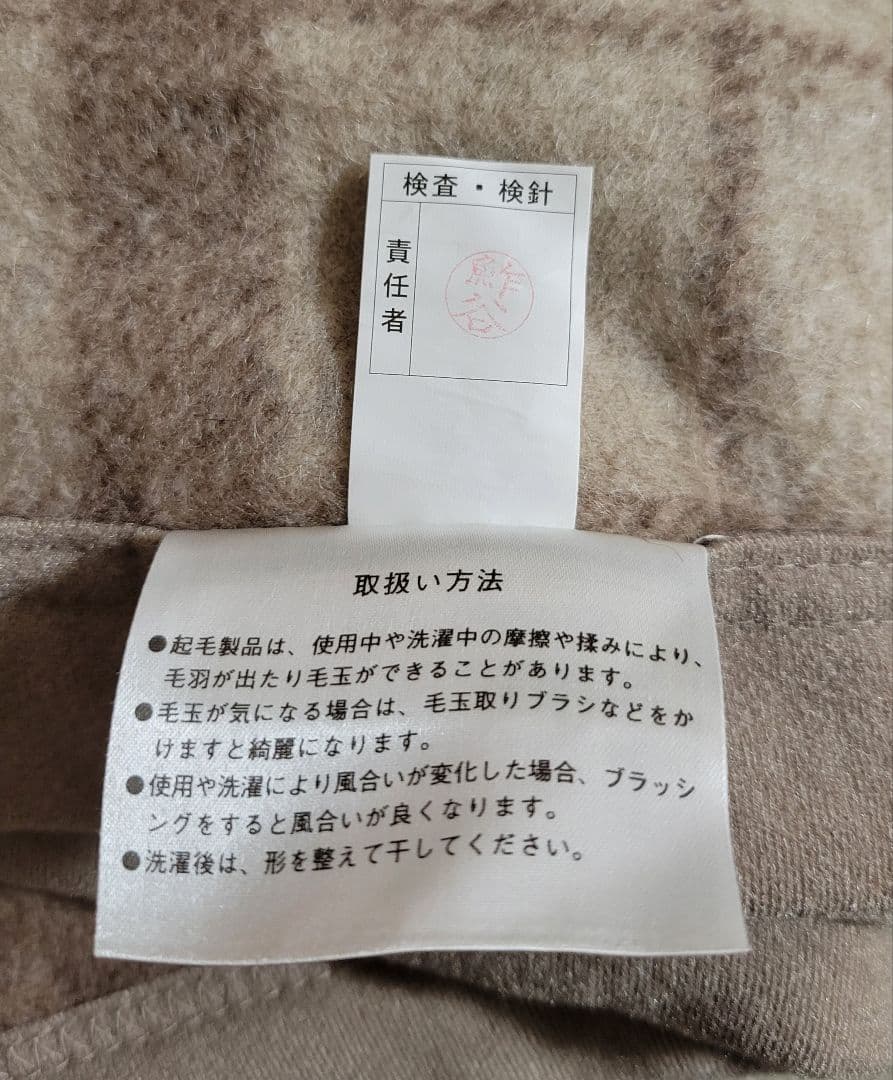 検査・検針
責任者
鮓谷
取扱い方法
●起毛製品は、使用中や洗濯中の摩擦や揉みにより、
毛羽が出たり毛玉ができることがあります。
●毛玉が気になる場合は、毛玉取りブラシなどをか
けますと綺麗になります。
●使用や洗濯により風合いが変化した場合、ブラッシ
ングをすると風合いが良くなります。
●洗濯後は、形を整えて干してください。